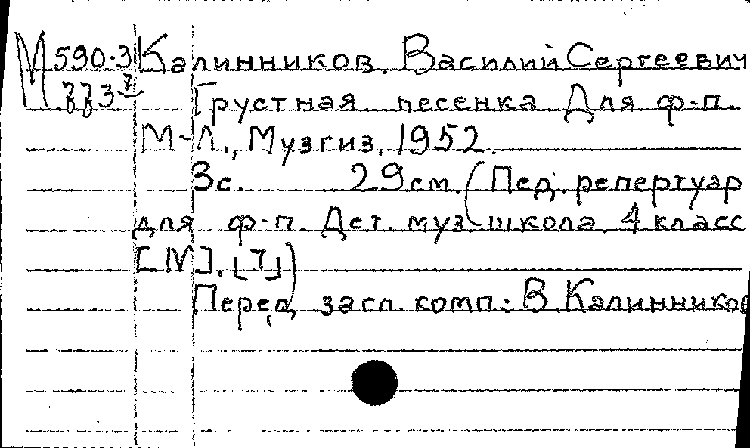 М 590-3 Калинников, Василий Сергеевич
Грустная песенка Для ф-п.
М-Л., Музгиз, 1952.
3с. 29 см. (Пед. репертуар
для ф-п. Дет. муз. школа 4 класс
[IV]. [7])
Перед. засл. комп.: В. Калинников